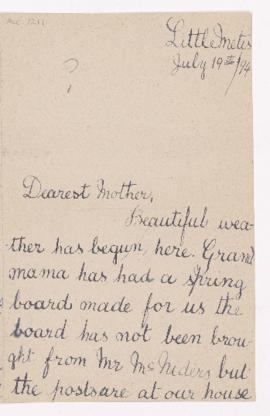 Acc. 1211
Little Metis
July 19th/94
?
Dearest Mother,
Beautiful wea-
ther has begun, here. Grand
mama has had a spring
board made for us the
board has not been brou-
ght from Mr Mc Niders but
the posts are at our house